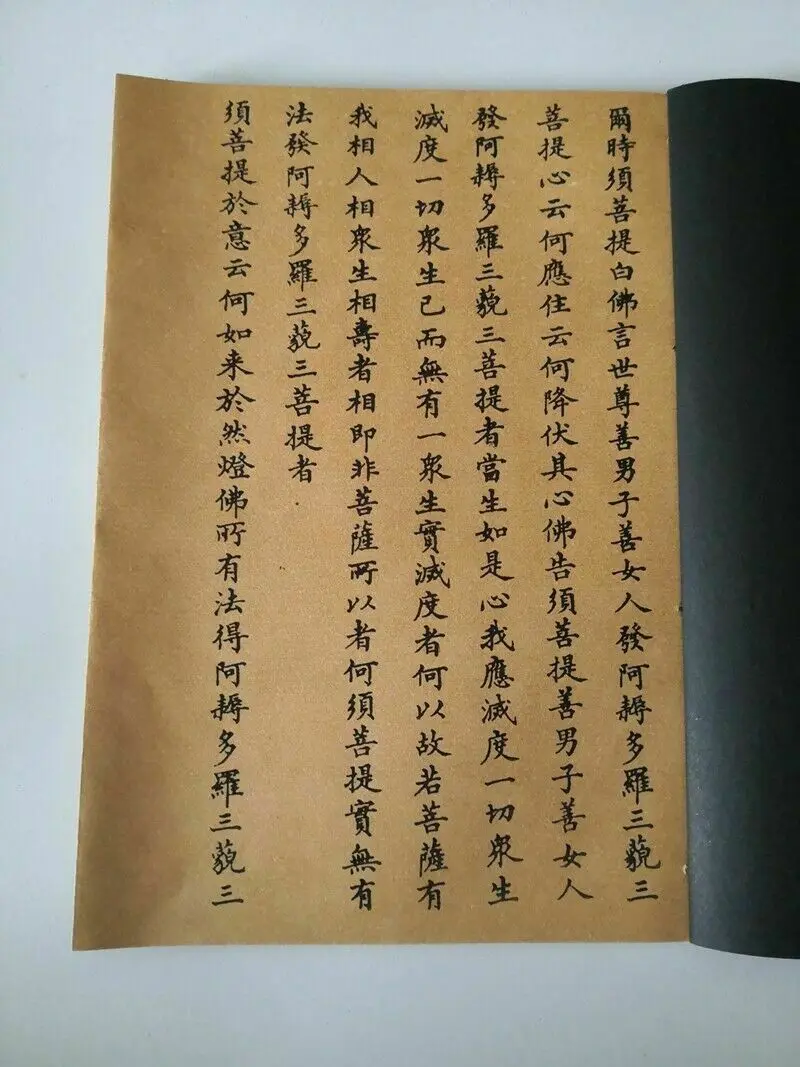 爾時須菩提白佛言世尊善男子善女人發阿耨多羅三藐三
菩提心云何應住云何降伏其心佛告須菩提善男子善女人
發阿耨多羅三藐三菩提者當生如是心我應滅度一切眾生
滅度一切眾生已而無有一眾生實滅度者何以故若菩薩有
我相人相眾生相壽者相即非菩薩所以者何須菩提實無有
法發阿耨多羅三藐三菩提者
須菩提於意云何如来於然燈佛所有法得阿耨多羅三藐三